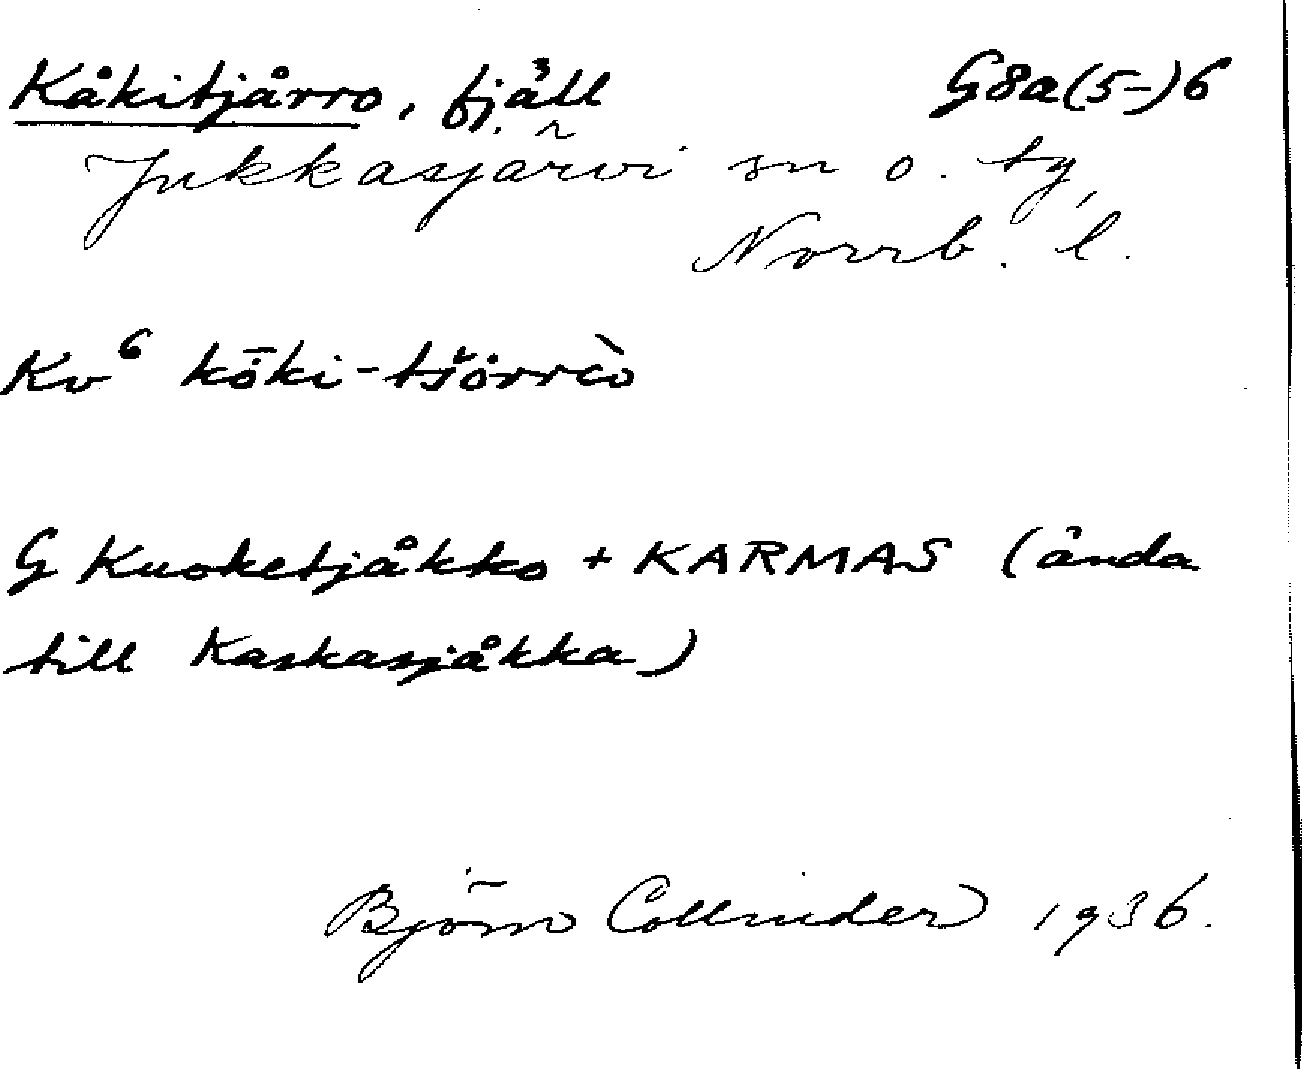 Kåkitjårro, fjäll G8a(5-)6
Jukkasjärvi sn o. tg,
Norrb. l.
Kv⁶ kō̇ki-tšȯrrò
G Kuoketjåkko + KARMAS (ända
till Kaskasjåkka)
Björn Collinder 1936.